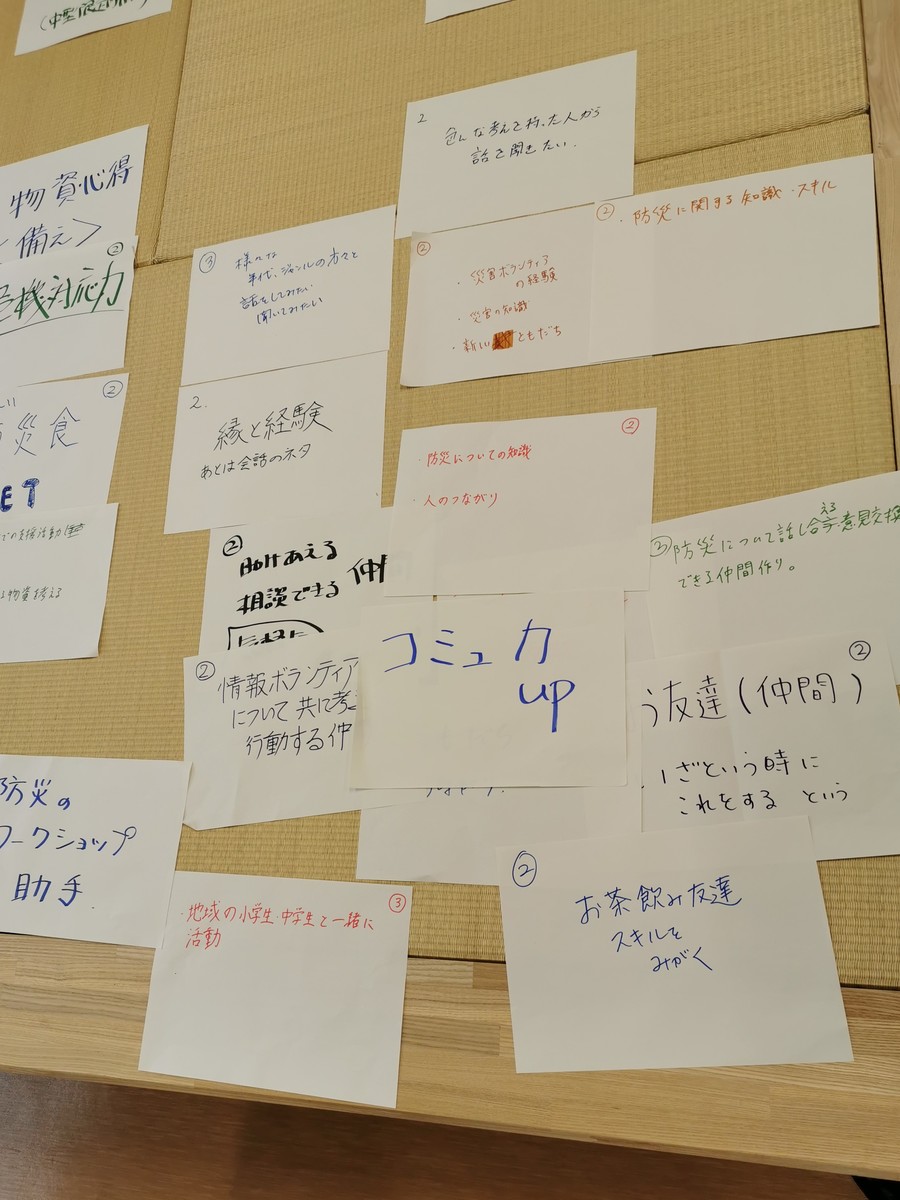 2
色んな考えを持った人から
話を聞きたい.
②
・防災に関する知識・スキル
②
・災害ボランティア
の経験
・災害の知識
・新しい
ともだち
③
様々な
年代、ジャンルの方々と
話をしてみたい
聞いてみたい
物資・心得
<備え>
②
危機対応力
②
災食
ET
2.
縁と経験
あとは会話のネタ
②
・防災についての知識
・人のつながり
での支援活動
る物資考える
②
助けあえる
相談できる
③
防災について話し合える意見交換
できる仲間作り。
コミュ力
up
②
情報ボランティア
について共に考え
行動する仲
②
う友達(仲間)
いざという時に
これをする という
防災の
ワークショップ
助手
③
・地域の小学生・中学生と一緒に
活動
②
お茶飲み友達
スキルを
みがく